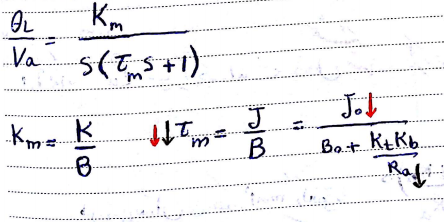 θL/Va = Km / S(τm S + 1)
Km = K/B ↓↓τm = J/B = Jo↓ / Bo + Kt Kb/Ra↓